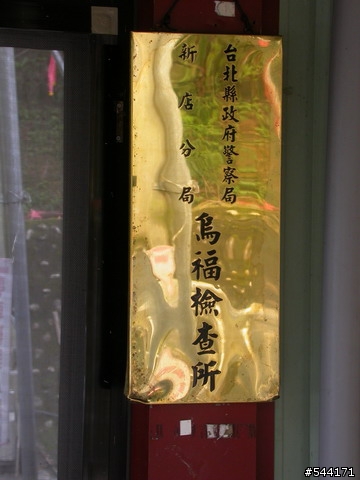 台北縣政府警察局
新店分局
烏福檢查所
#544171